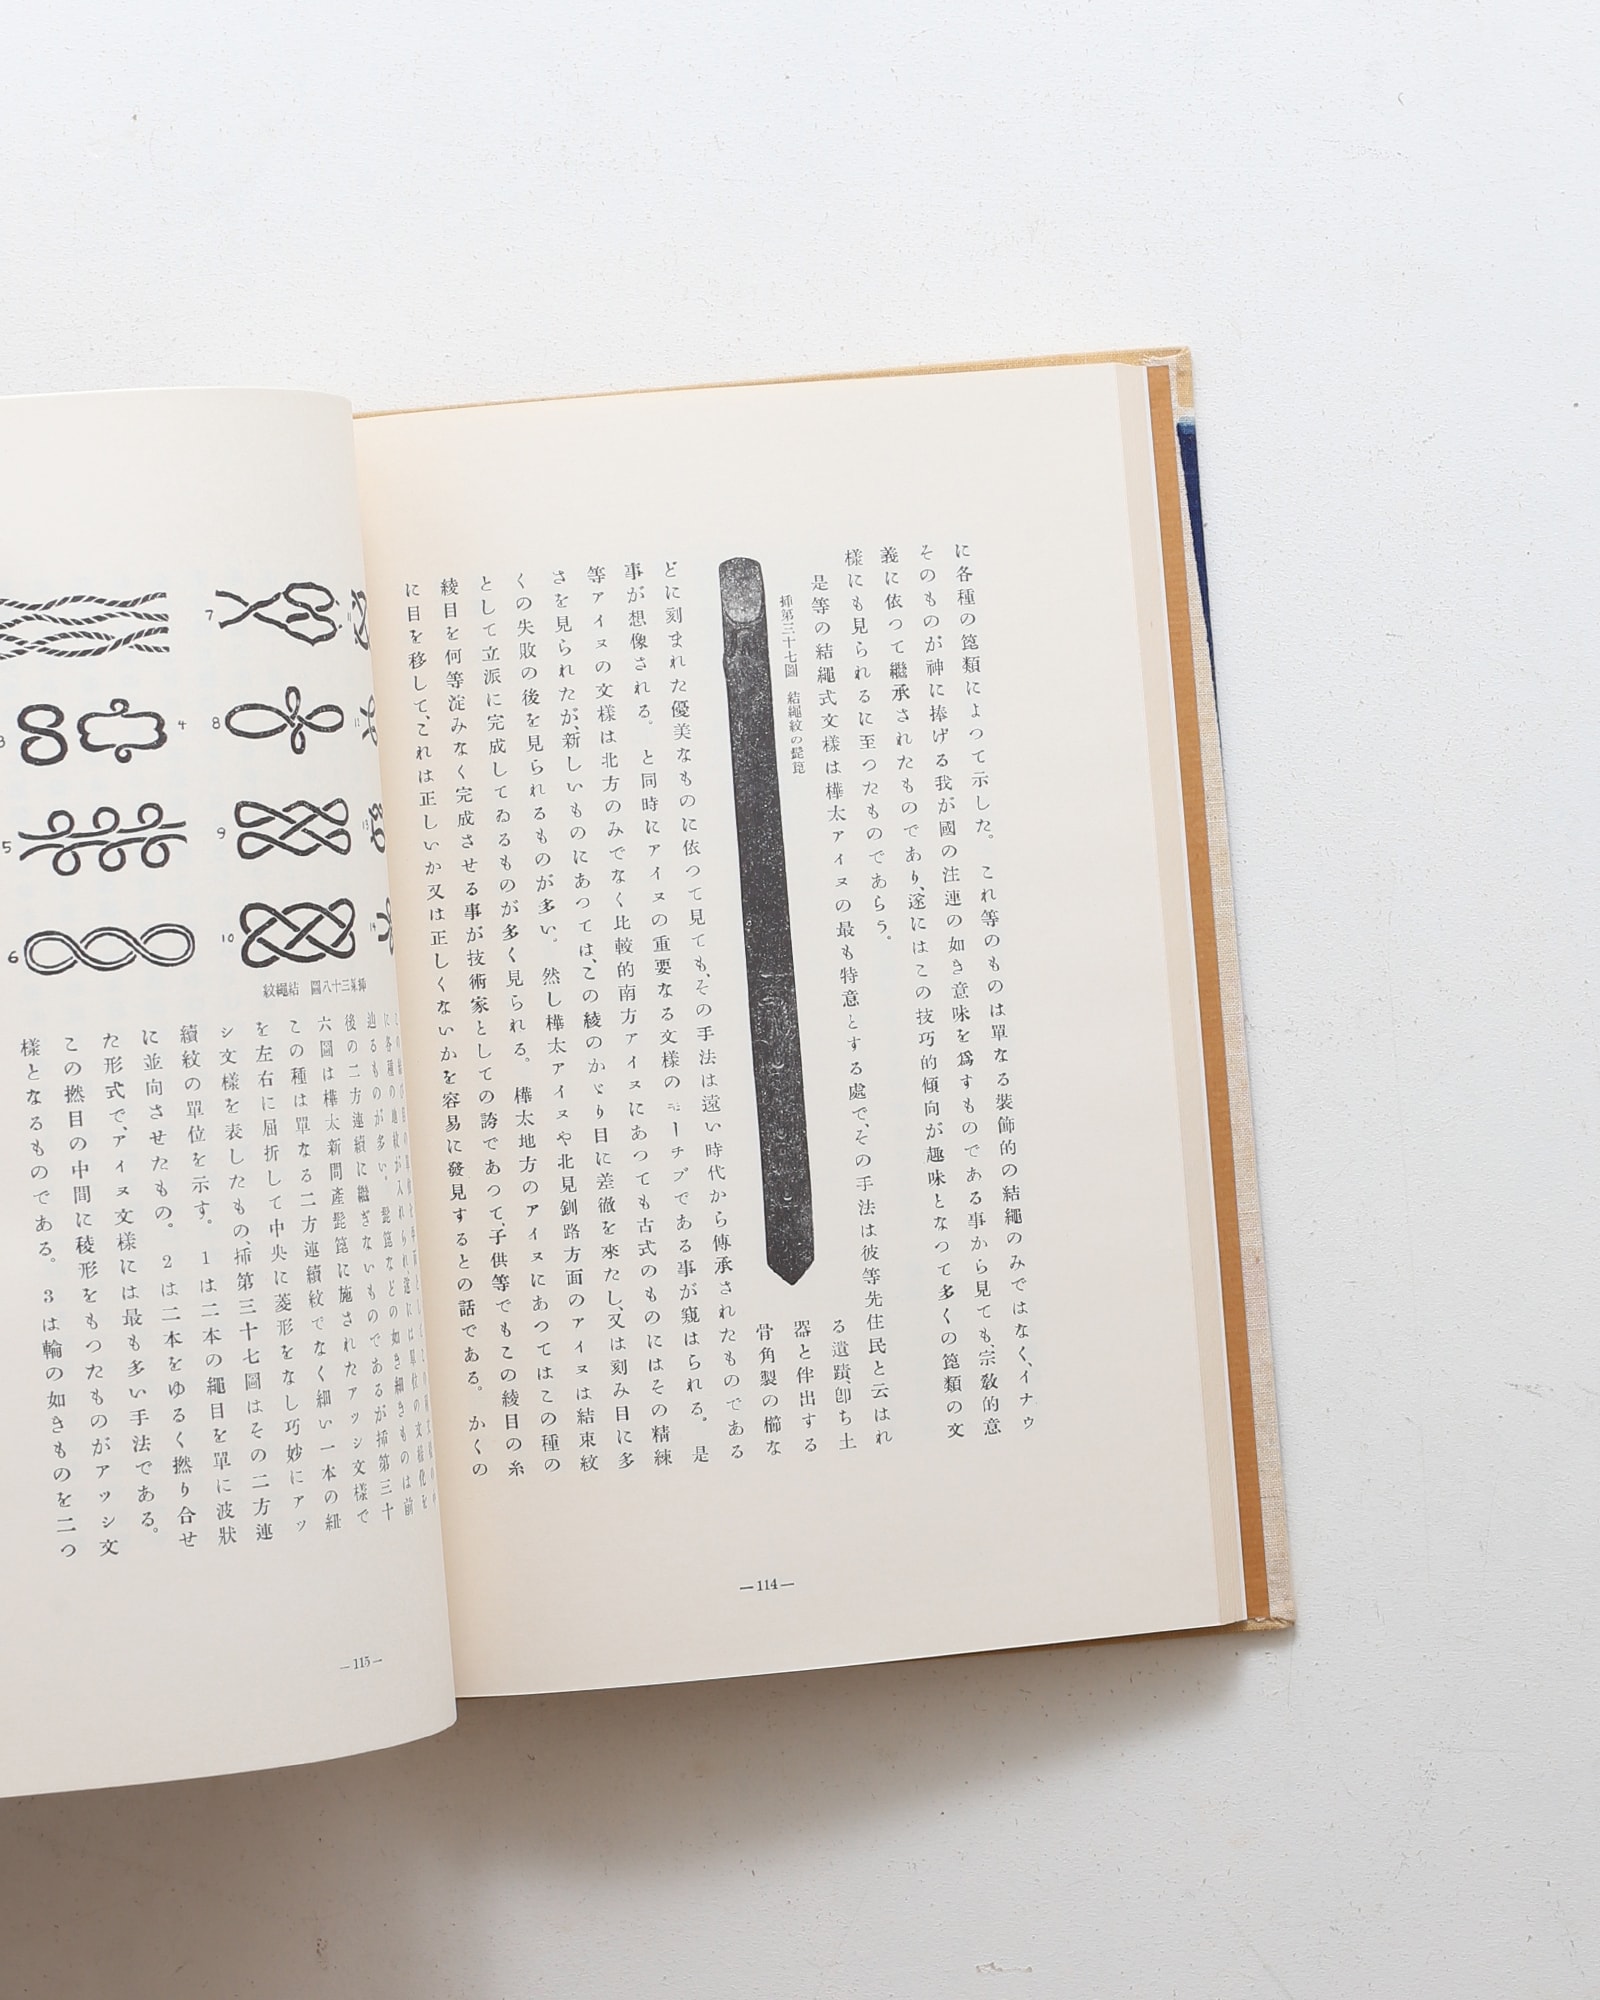 に各種の箆類によつて示した。 これ等のものは單なる裝飾的の結繩のみではなく、イナゥ
そのものが神に捧げる我が國の注連の如き意味を爲すものである事から見ても、宗敎的意
義に依つて繼承されたものであり、遂にはこの技巧的傾向が趣味となつて多くの箆類の文
樣にも見られるに至つたものであらう。
是等の結繩式文樣は樺太アイヌの最も特意とする處で、その手法は彼等先住民と云はれ
る遺蹟、卽ち土
器と伴出する
骨角製の櫛な
揷第三十七圖 結繩紋の髭箆
どに刻まれた優美なものに依つて見ても、その手法は遠い時代から傳承されたものである
事が想像される。 と同時にアイヌの重要なる文樣のモーチブである事が窺はられる。 是
等アイヌの文樣は北方のみでなく比較的南方アイヌにあつても古式のものにはその精練
さを見られたが、新しいものにあつては、この綾のかゞり目に差徹を來たし、又は刻み目に多
くの失敗の後を見られるものが多い。 然し樺太アイヌや北見釧路方面のアイヌは結束紋
として立派に完成してゐるものが多く見られる。 樺太地方のアイヌにあつてはこの種の
綾目を何等淀みなく完成させる事が技術家としての誇であつて、子供等でもこの綾目の糸
に目を移して、これは正しいか又は正しくないかを容易に發見するとの話である。 かくの
—114—
7
11
8
4
3
9
13
5
10
14
6
揷第三十八圖 結繩紋
に各種の地紋が入れられ遂には單位の文樣化を
辿るものが多い。 髭箆などの如き細きものは前
後の二方連續に繼ぎないものであるが揷第三十
六圖は樺太新問產髭箆に施されたアッシ文樣で
この種は單なる二方連續紋でなく細い一本の紐
を左右に屈折して中央に菱形をなし巧妙にアッ
シ文樣を表したもの、揷第三十七圖はその二方連
續紋の單位を示す。 1は二本の繩目を單に波狀
に並向させたもの。 2は二本をゆるく撚り合せ
た形式で、アイヌ文樣には最も多い手法である。
この撚目の中間に稜形をもつたものがアッシ文
樣となるものである。 3は輪の如きものを二つ
—115—